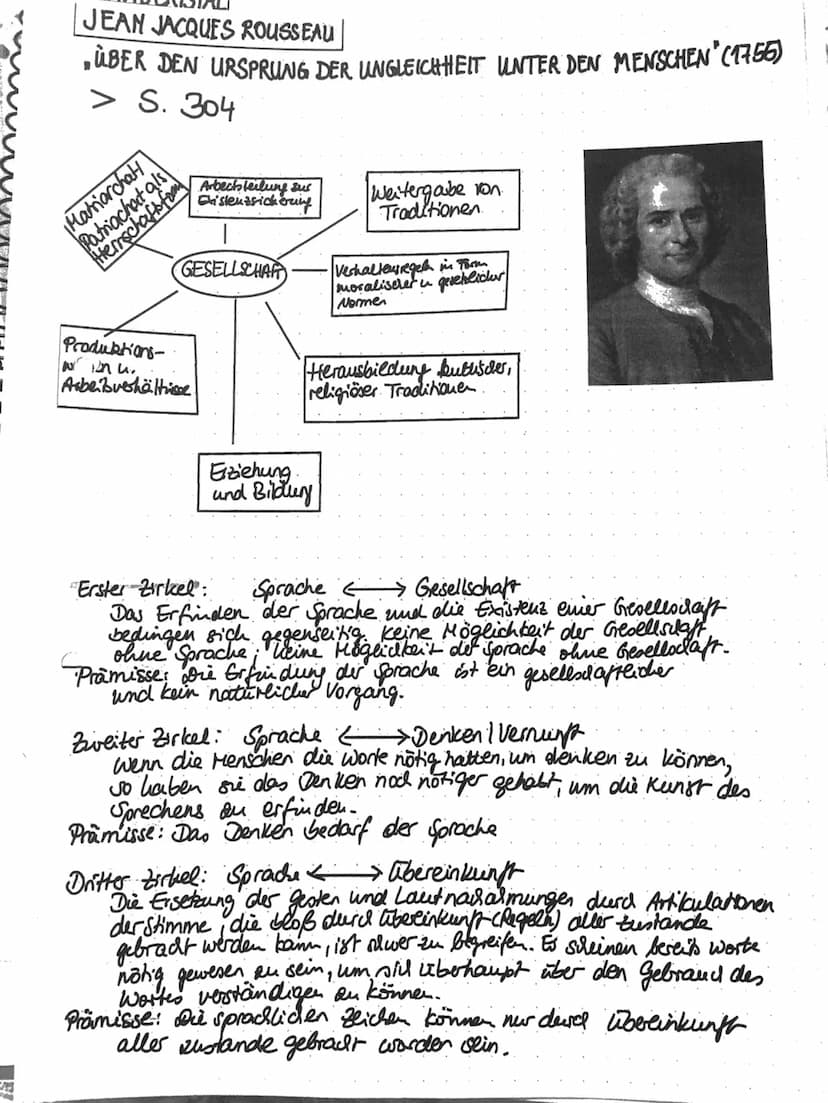 JEAN JACQUES ROUSSEAU
„ÜBER DEN URSPRUNG DER UNGLEICHHEIT UNTER DEN MENSCHEN" (1755)
> S. 304
Matriarchat/
Patriachat als
Herrschaftsform
Arbeitsteilung zur
Existenzsicherung
Weitergabe von
Traditionen
GESELLSCHAFT
Verhaltensregeln in Form
moralischer u gesetzlicher
Normen
Produktions-
u.
Arbeitsverhältnisse
Herausbildung kultischer,
religiöser Traditionen
Erziehung
und Bildung
Erster Zirkel: Sprache <—> Gesellschaft
Das Erfinden der Sprache und die Existenz einer Gesellschaft
bedingen sich gegenseitig. Keine Möglichkeit der Gesellschaft
ohne Sprache; keine Möglichkeit der Sprache ohne Gesellschaft.
Prämisse: Die Erfindung der Sprache ist ein gesellschaftlicher
und kein natürlicher Vorgang.
Zweiter Zirkel: Sprache <—> Denken / Vernunft
Wenn die Menschen die Worte nötig hatten, um denken zu können,
so haben sie das Denken noch nötiger gehabt, um die Kunst des
Sprechens zu erfinden.
Prämisse: Das Denken bedarf der Sprache
Dritter Zirkel: Sprache <—> Übereinkunft
Die Ersetzung der Gesten und Lautnachahmungen durch Artikulationen
der Stimme, die bloß durch Übereinkunft (Regeln) aller zustande
gebracht werden kann, ist schwer zu begreifen. Es scheinen bereits Worte
nötig gewesen zu sein, um sich überhaupt über den Gebrauch des
Wortes verständigen zu können.
Prämisse: Die sprachlichen Zeichen können nur durch Übereinkunft
aller zustande gebracht worden sein.